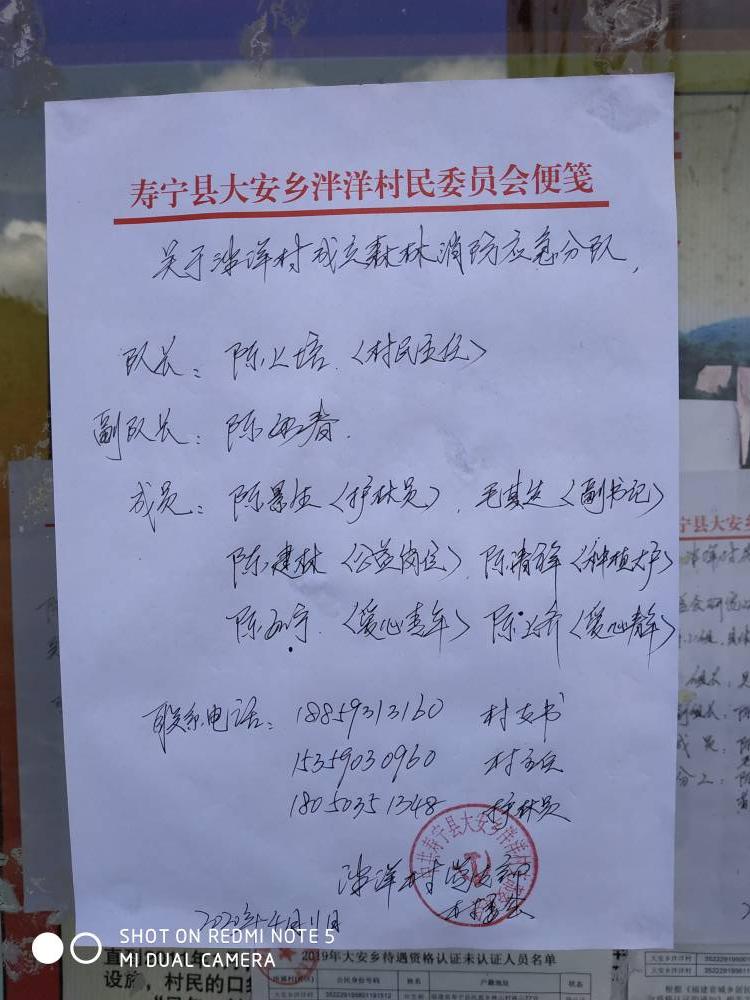 寿宁县大安乡泮洋村民委员会便笺
关于泮洋村成立森林消防应急分队,
队长: 陈上培 (村民主任)
副队长: 陈 春.
成员: 陈景生 (护林员), 毛其生 (副书记)
陈建林 (公益岗位), 陈清锋 (种植大户)
陈 宇 (爱心青年) 陈上济 (爱心青年)
联系电话: 18859313160 村支书
15359030960 村主任
18050351348 护林员
泮洋村党支部
村委会
2020年4月11日
SHOT ON REDMI NOTE 5
MI DUAL CAMERA
2019年大安乡待遇资格认证未认证人员名单
设施，村民的口